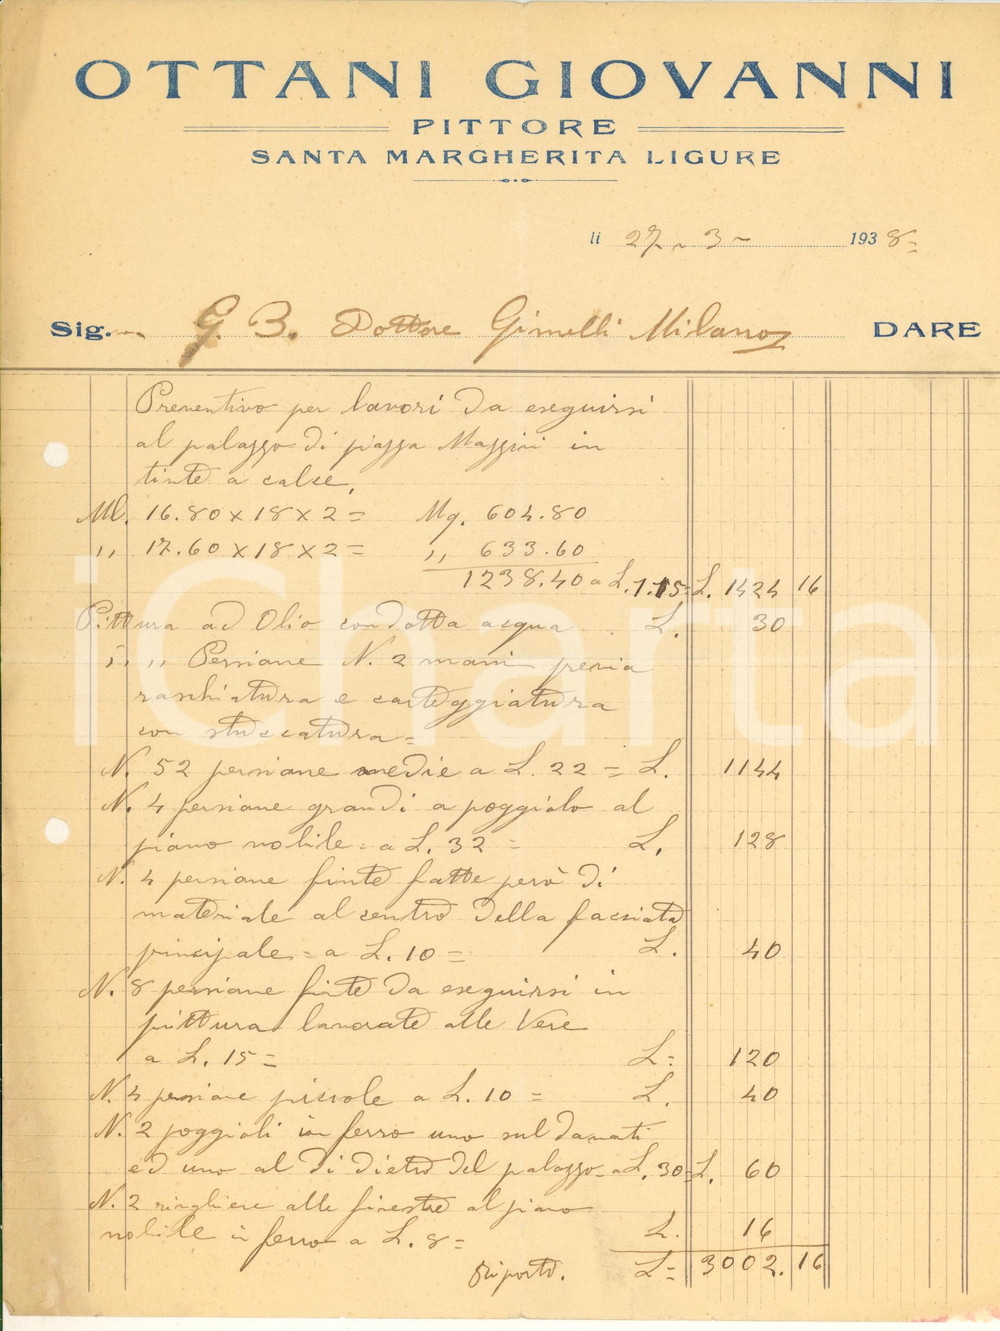 OTTANI GIOVANNI
PITTORE
SANTA MARGHERITA LIGURE
li 27 - 3 - 1938=
Sig. G. B. Dottore Gimelli Milano DARE
Preventivo per lavori da eseguirsi
al palazzo di piazza Mazzini in
tinte a calce,
Ml. 16.80 x 18 x 2 = Mq. 604.80
,, 17.60 x 18 x 2 = ,, 633.60
1238.40 a L. 1.15= L. 1424 16
Pittura ad Olio condotta acqua . L. 30
,, ,, Persiane N. 2 mani previa
raschiatura e carteggiatura
con stuccatura=
N. 52 persiane medie a L. 22 = L. 1144
N. 4 persiane grandi a poggiolo al
piano nobile = a L. 32 = L. 128
N. 4 persiane finte fatte però di
materiale al centro della facciata
principale = a L. 10 = L. 40
N. 8 persiane finte da eseguirsi in
pittura lavorate alle Vere
a L. 15 = L= 120
N. 4 persiane piccole a L. 10 = L. 40
N. 2 poggioli in ferro uno sul davanti
ed uno al di dietro del palazzo = a L. 30= L. 60
N. 2 ringhiere alle finestre al piano
nobile in ferro a L. 8 = L. 16
Riporto. L= 3002.16
iCharta